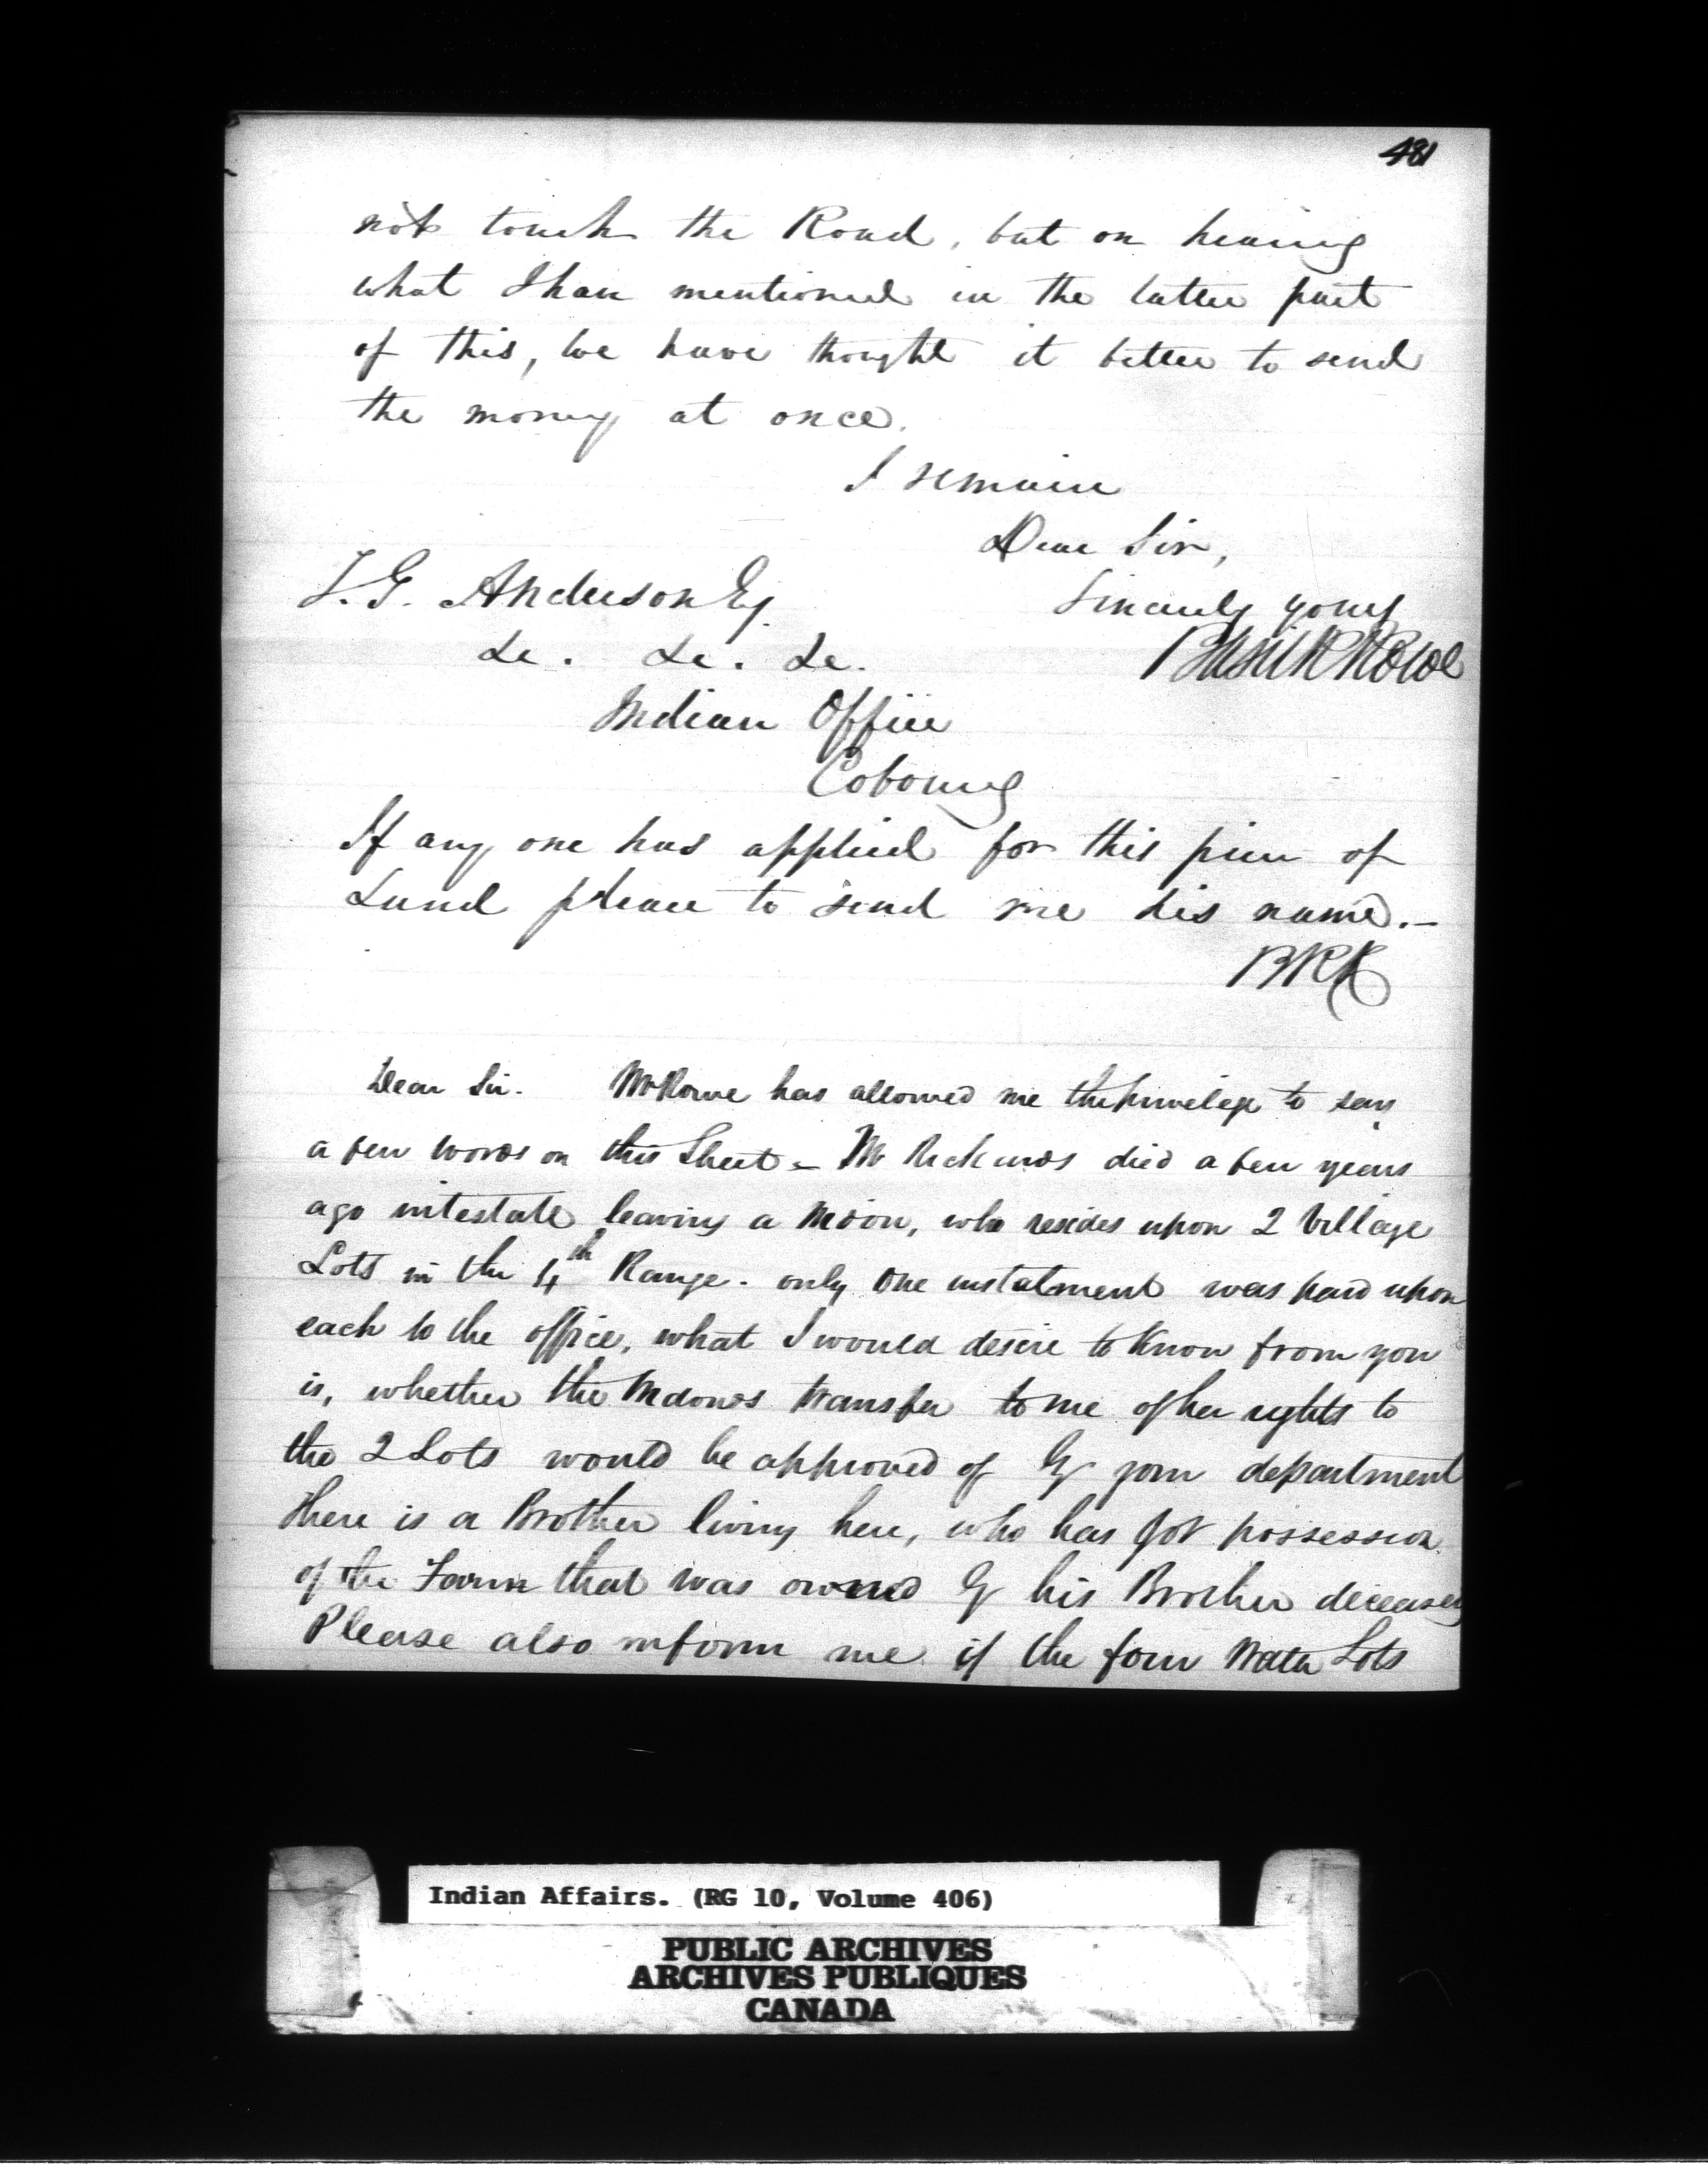 481
not touch the Road, but on hearing
what I have mentioned in the latter part
of this, we have thought it better to send
the money at once.
I remain
Dear Sir,
T. G. Anderson Esq.
Sincerely yours
&c. &c. &c.
Basil R Rowe
Indian Office
Cobourg
If any one has applied for this piece of
Land please to send me his name.—
BRR
Dear Sir. Mr Rowe has allowed me the privelege to say
a few words on this Sheet – Mr Rickards died a few years
ago intestate leaving a Widow, who resides upon 2 Village
Lots in the 4th Range. only one instalment was paid upon
each to the office, what I would desire to know from you
is, whether the Widows transfer to me of her rights to
the 2 Lots would be approved of by your department
there is a Brother living here, who has got possession
of the Farm that was owned by his Brother deceased
Please also inform me if the four Water Lots
Indian Affairs. (RG 10, Volume 406)
PUBLIC ARCHIVES
ARCHIVES PUBLIQUES
CANADA